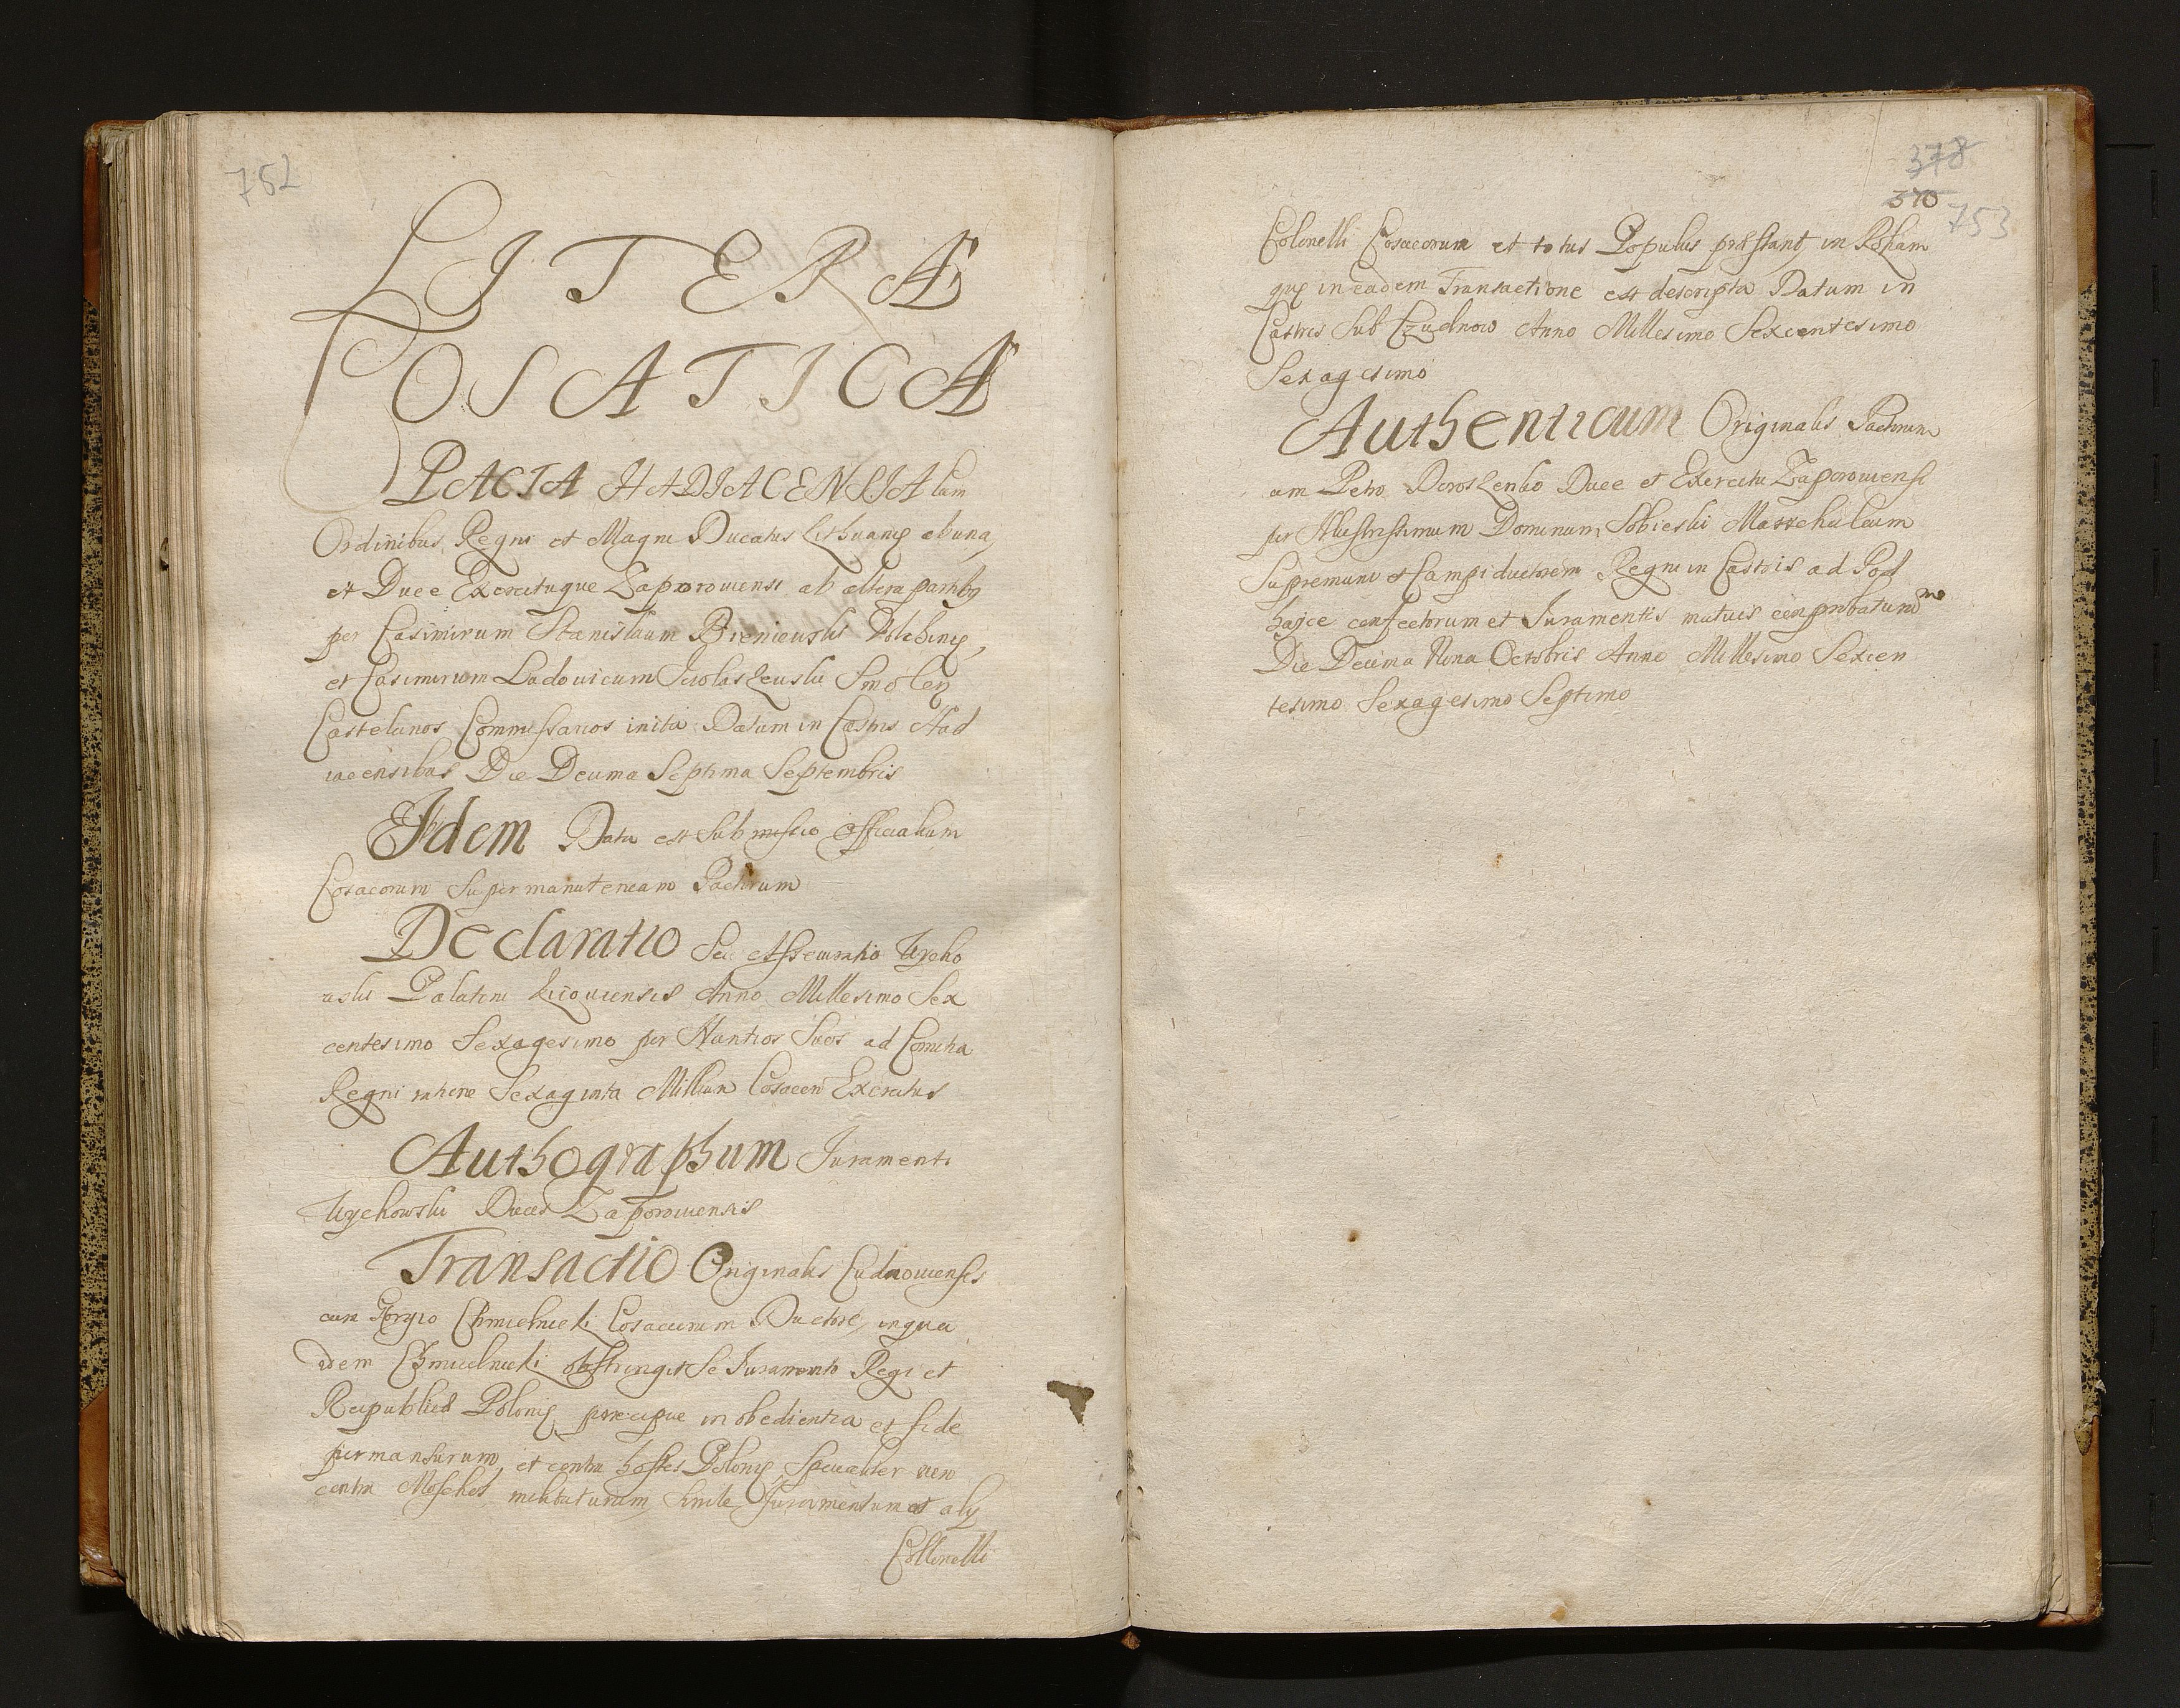 752
LITERÆ
COSATICÆ
PACTA HADIACENSIA cum
Ordinibus Regni et Magni Ducatus Lithuanię ab una,
et Duce Exercituque Zaporoviensi ab altera partibꝯ
per Casimirum Stanislaum Bieniewski Volchinię,
et Casimirum Ludovicum Jewlaszewski Smolen
Castelanos Commissarios inita Datum in Castris Had
iacensibus Die Decima Septima Septembris
Ibidem Data est Submissio Officialium
Cosacorum Super manuteneam Pactorum
Declaratio Seu Assecuratio Wyho
wski Palatini Kiioviensis Anno Millesimo Sex
centesimo Sexagesimo per Nuntios Suos ad Comitia
Regni ratione Sexaginta Millium Cosacor Exercitus
Authographum Juramenti
Wyehowski Ducis Zaporoviensis
Transactio Originalis Cudnoviensis
cum Georgio Chmielnicki Cosacorum Ductore, in qua
idem Chmielnicki obstringit Se Juramento Regi et
Reipublicæ Polonię, præcipue in obedientia et fide
permansurum, et contra hostes Polonię, Specialiter vero
contra Moschos militaturum, Simile Juramentum et alÿ
Collonelli
378
370
753
Colonelli Cosacorum et totus Populus præstant, in Rotham
quę in eadem Transactione est descripta Datum in
Castris Sub Czudnow Anno Millesimo Sexcentesimo
Sexagesimo
Authenticum Originalis Pactorum
cum Petro Doroszenko Duce et Exercitu Zaporoviensi
per Illustrissimum Dominum Sobieski Marschalcum
Supremum et Campiductorem Regni in Castris ad Pod
hajce confectorum et Juramentis mutuis comprobatum
Die Decima Nona Octobris Anno Millesimo Sexcen
tesimo Sexagesimo Septimo